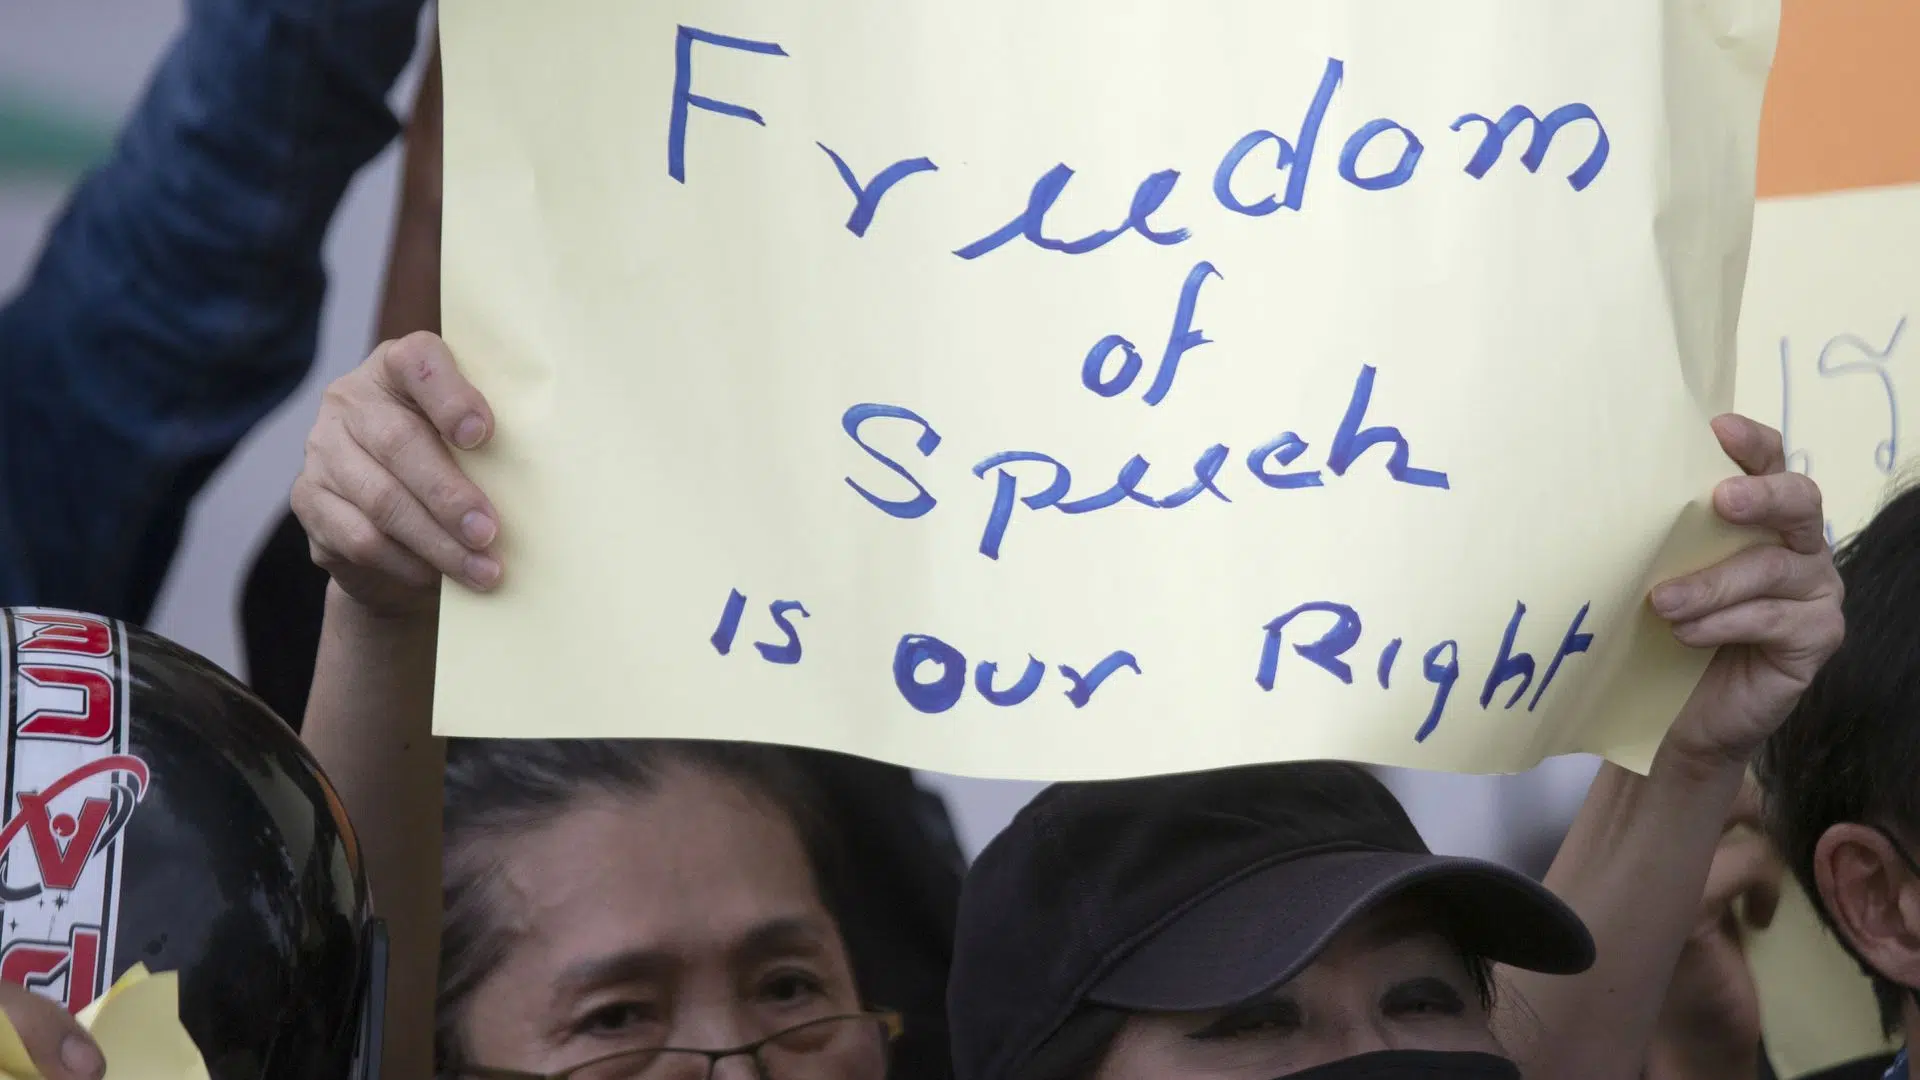 Freedom
of
Speech
is our Right